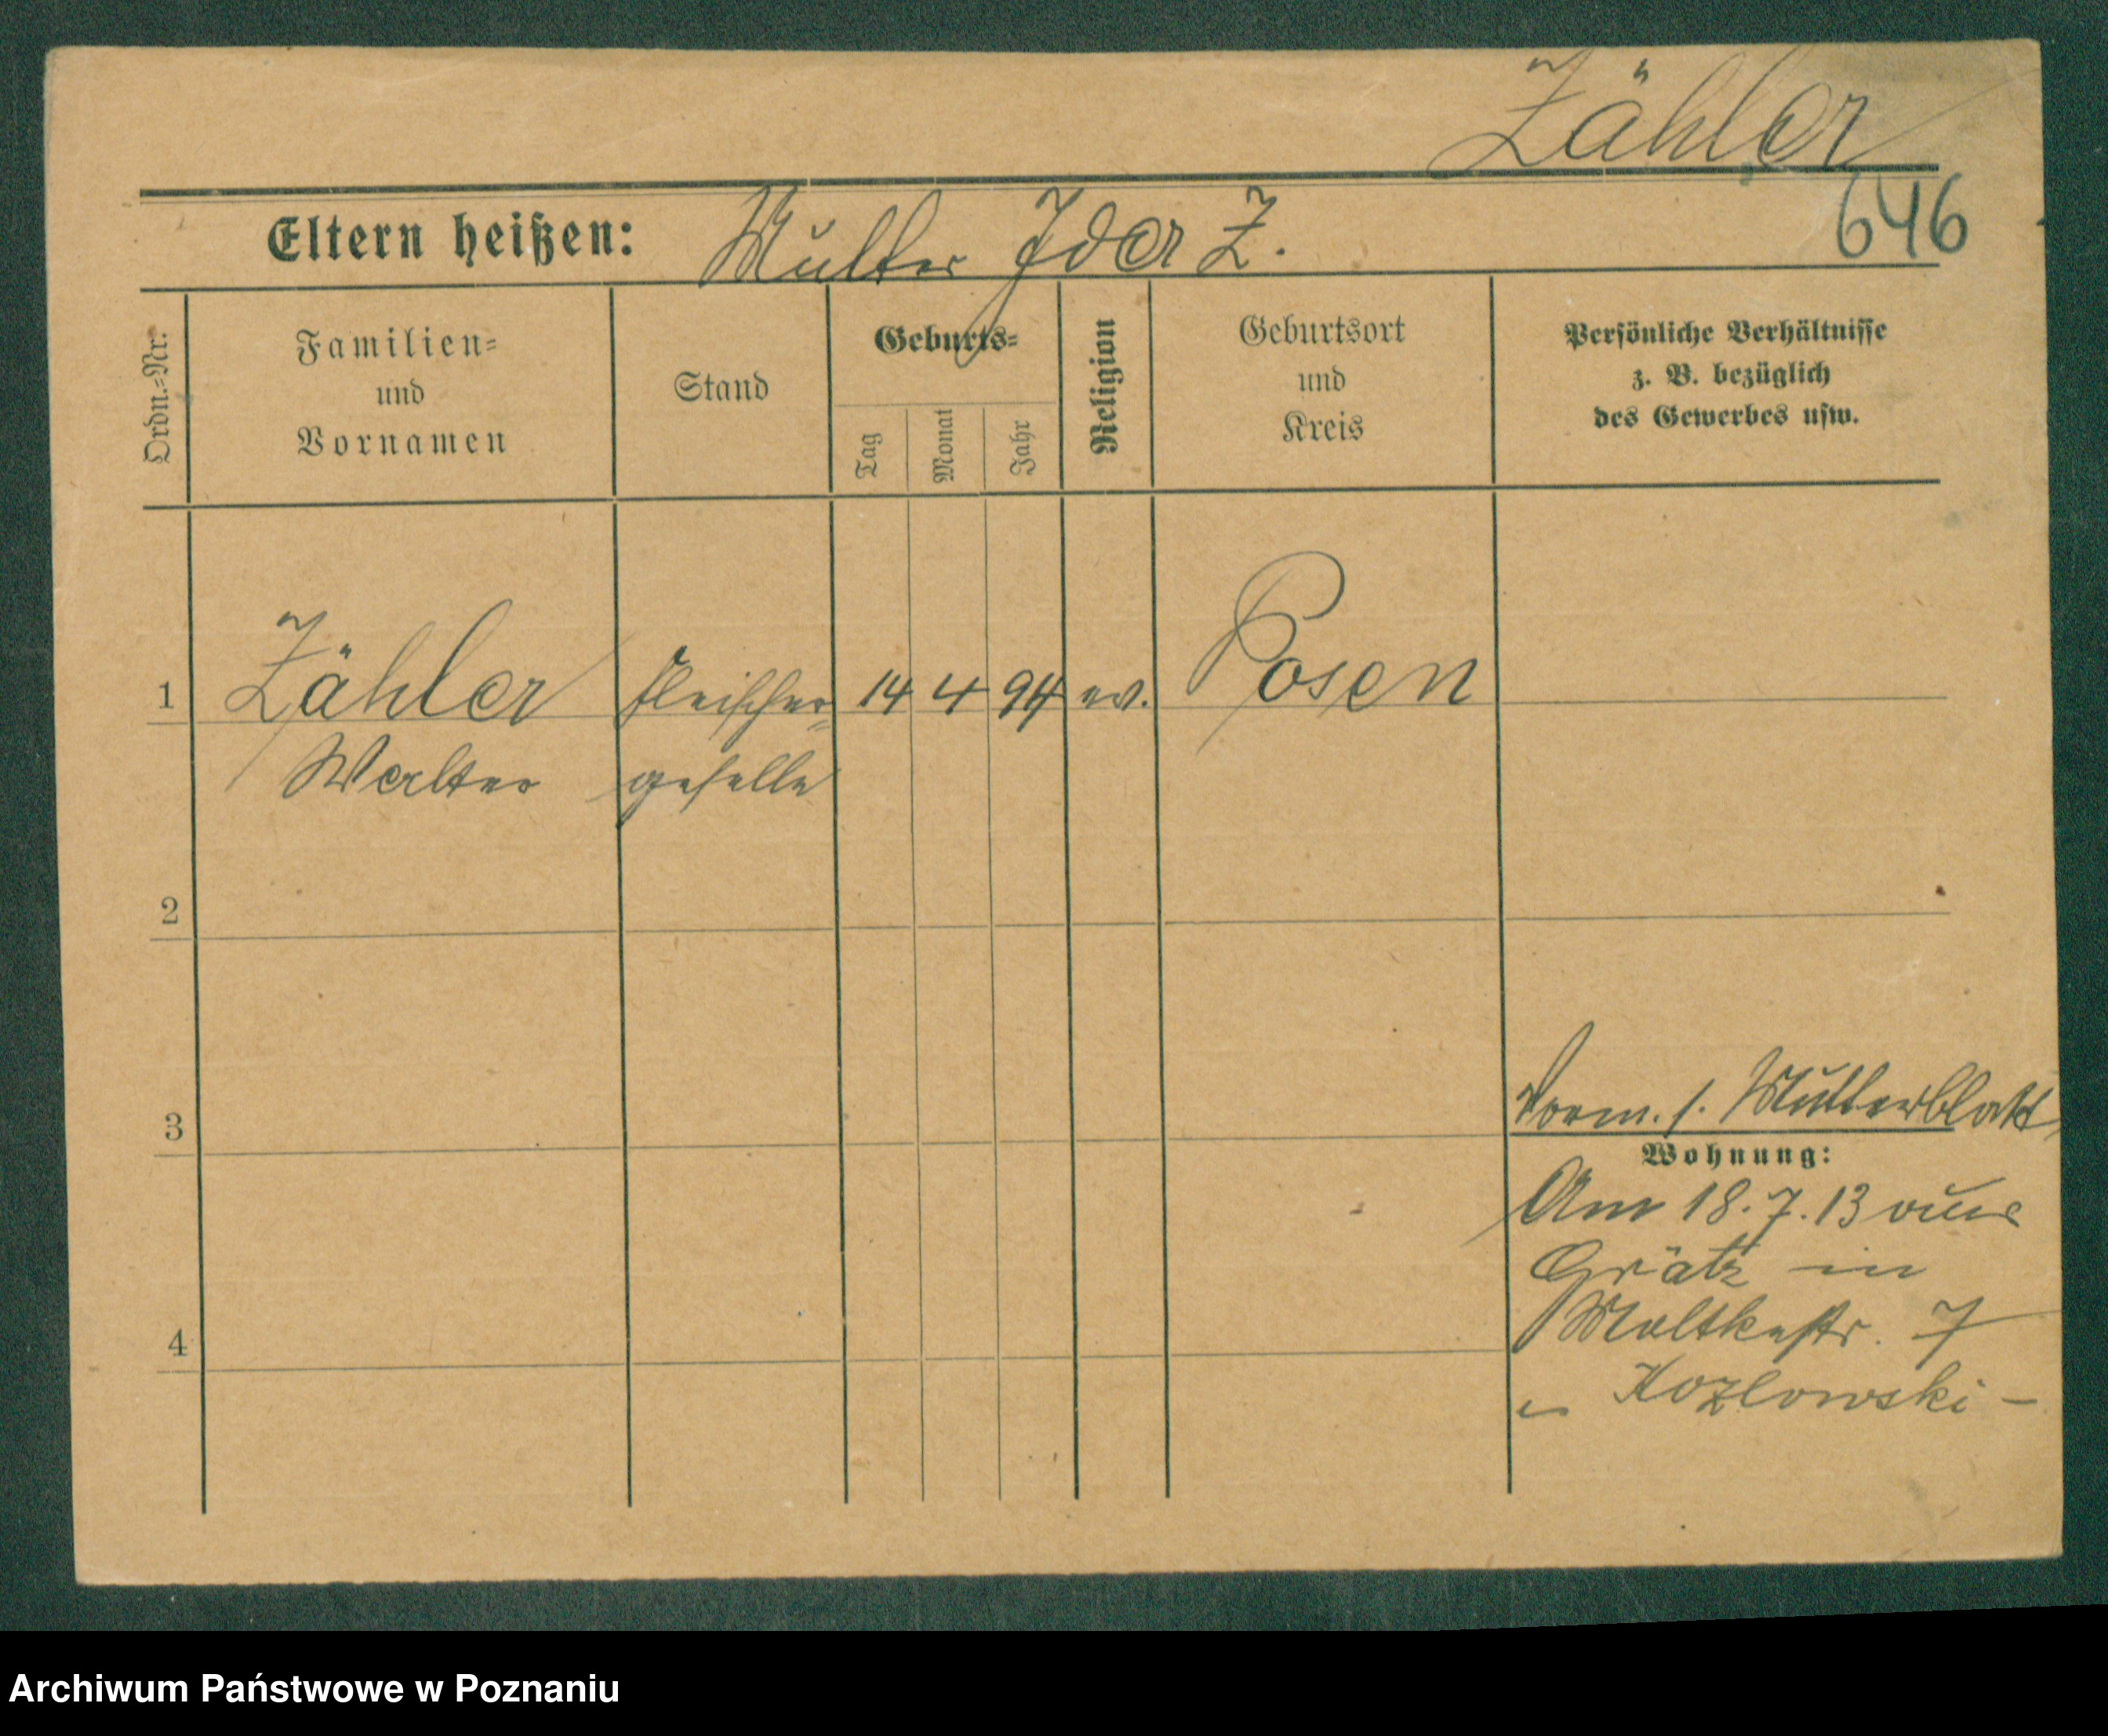 Zähler
646
Eltern heißen: Mutter Ida Z.
Ordn.-Nr.
Familien-
und
Vornamen
Stand
Geburts-
Tag
Monat
Jahr
Religion
Geburtsort
und
Kreis
Persönliche Verhältnisse
z. B. bezüglich
des Gewerbes usw.
1 Zähler Fleischer- 14 4 94 ev. Posen
Walter geselle
2
3
Vorm. s. Mutterblatt
Wohnung:
Am 18.7.13 aus
Grätz in
Moltkestr. 7
Kozlowski -
4
Archiwum Państwowe w Poznaniu